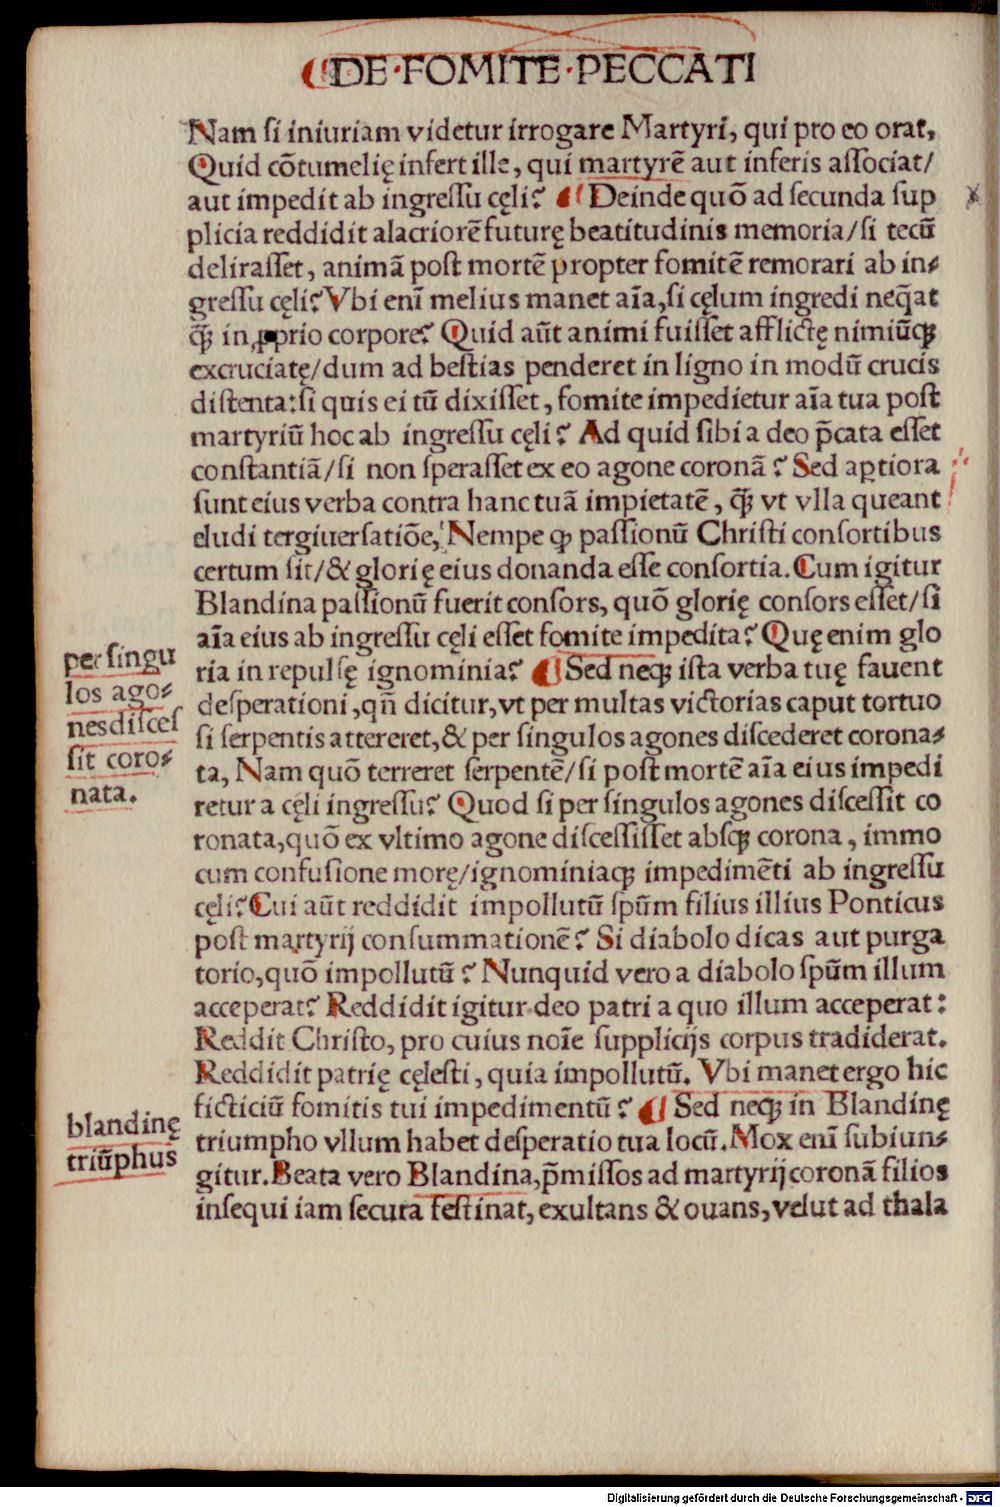 DE·FOMITE·PECCATI
Nam ſi iniuriam videtur irrogare Martyri, qui pro eo orat,
Quid cõtumelię infert ille, qui martyrẽ aut inferis aſſociat/
aut impedit ab ingreſſu cęli? ¶ Deinde quõ ad ſecunda ſup
plicia reddidit alacriorẽ futurę beatitudinis memoria/ſi tecũ
deliraſſet, animã poſt mortẽ propter fomitẽ remorari ab in⸗
greſſu cęli? Vbi enĩ melius manet aĩa, ſi cęlum ingredi neq̃at
q̃ꝫ in ꝓprio corpore? Quid aũt animi fuiſſet afflictę nimiũꝗꝫ
excruciatę/dum ad beſtias penderet in ligno in modũ crucis
diſtenta: ſi quis ei tũ dixiſſet, fomite impedietur aĩa tua poſt
martyriũ hoc ab ingreſſu cęli? Ad quid ſibi a deo p̃cata eſſet
conſtantiã/ſi non ſperaſſet ex eo agone coronã? Sed aptiora
ſunt eius verba contra hanc tuã impietatẽ, q̃ꝫ vt vlla queant
eludi tergiuerſatiõe, Nempe ꝙ paſſionũ Chriſti conſortibus
certum ſit/& glorię eius donanda eſſe conſortia. Cum igitur
Blandina paſſionũ fuerit conſors, quõ glorię conſors eſſet/ſi
aĩa eius ab ingreſſu cęli eſſet fomite impedita? Quę enim glo
ria in repulſę ignominia? ¶ Sed neqꝫ iſta verba tuę fauent
deſperationi, qñ dicitur, vt per multas victorias caput tortuo
ſi ſerpentis attereret, & per ſingulos agones diſcederet corona⸗
ta, Nam quõ terreret ſerpentẽ/ſi poſt mortẽ aĩa eius impedi
retur a cęli ingreſſu? Quod ſi per ſingulos agones diſceſſit co
ronata, quõ ex vltimo agone diſceſſiſſet abſqꝫ corona, immo
cum confuſione morę/ignominiaqꝫ impedimẽti ab ingreſſu
cęli? Cui aũt reddidit impollutũ ſpũm filius illius Ponticus
poſt martyrij conſummationẽ? Si diabolo dicas aut purga
torio, quõ impollutũ? Nunquid vero a diabolo ſpũm illum
acceperat? Reddidit igitur deo patri a quo illum acceperat:
Reddit Chriſto, pro cuius noĩe ſupplicijs corpus tradiderat.
Reddidit patrię cęleſti, quia impollutũ. Vbi manet ergo hic
ficticiũ fomitis tui impedimentũ? ¶ Sed neqꝫ in Blandinę
triumpho vllum habet deſperatio tua locũ. Mox enĩ ſubiun⸗
gitur. Beata vero Blandina, p̃miſſos ad martyrij coronã filios
inſequi iam ſecura feſtinat, exultans & ouans, velut ad thala
per ſingu
los ago⸗
nes diſceſ
ſit coro⸗
nata.
blandinę
triũphus
Digitalisierung gefördert durch die Deutsche Forschungsgemeinschaft - DFG